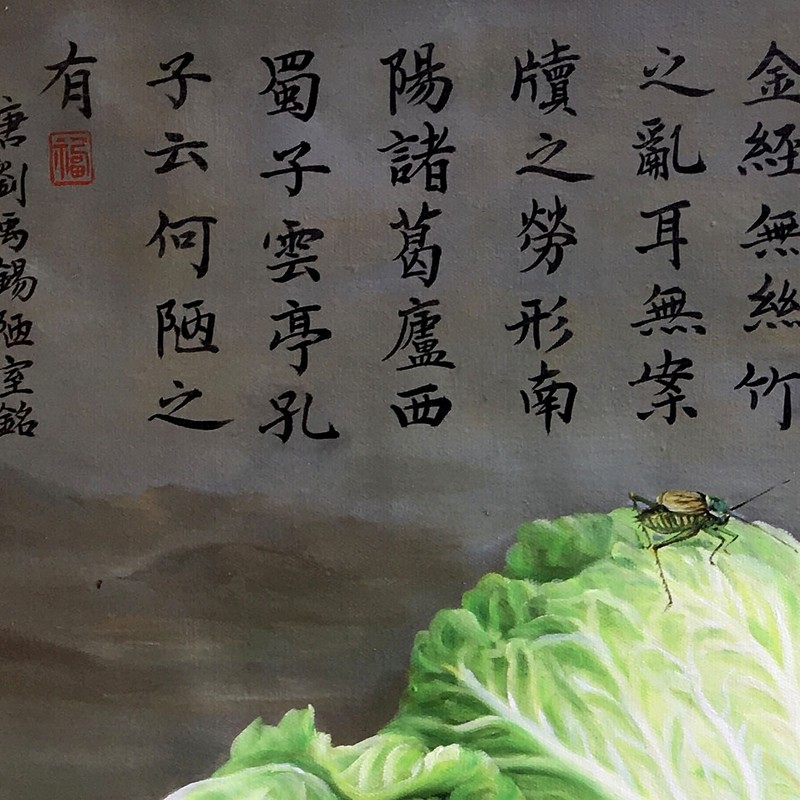 金經無絲竹
之亂耳無案
牘之勞形南
陽諸葛廬西
蜀子雲亭孔
子云何陋之
有
福
唐劉禹錫陋室銘